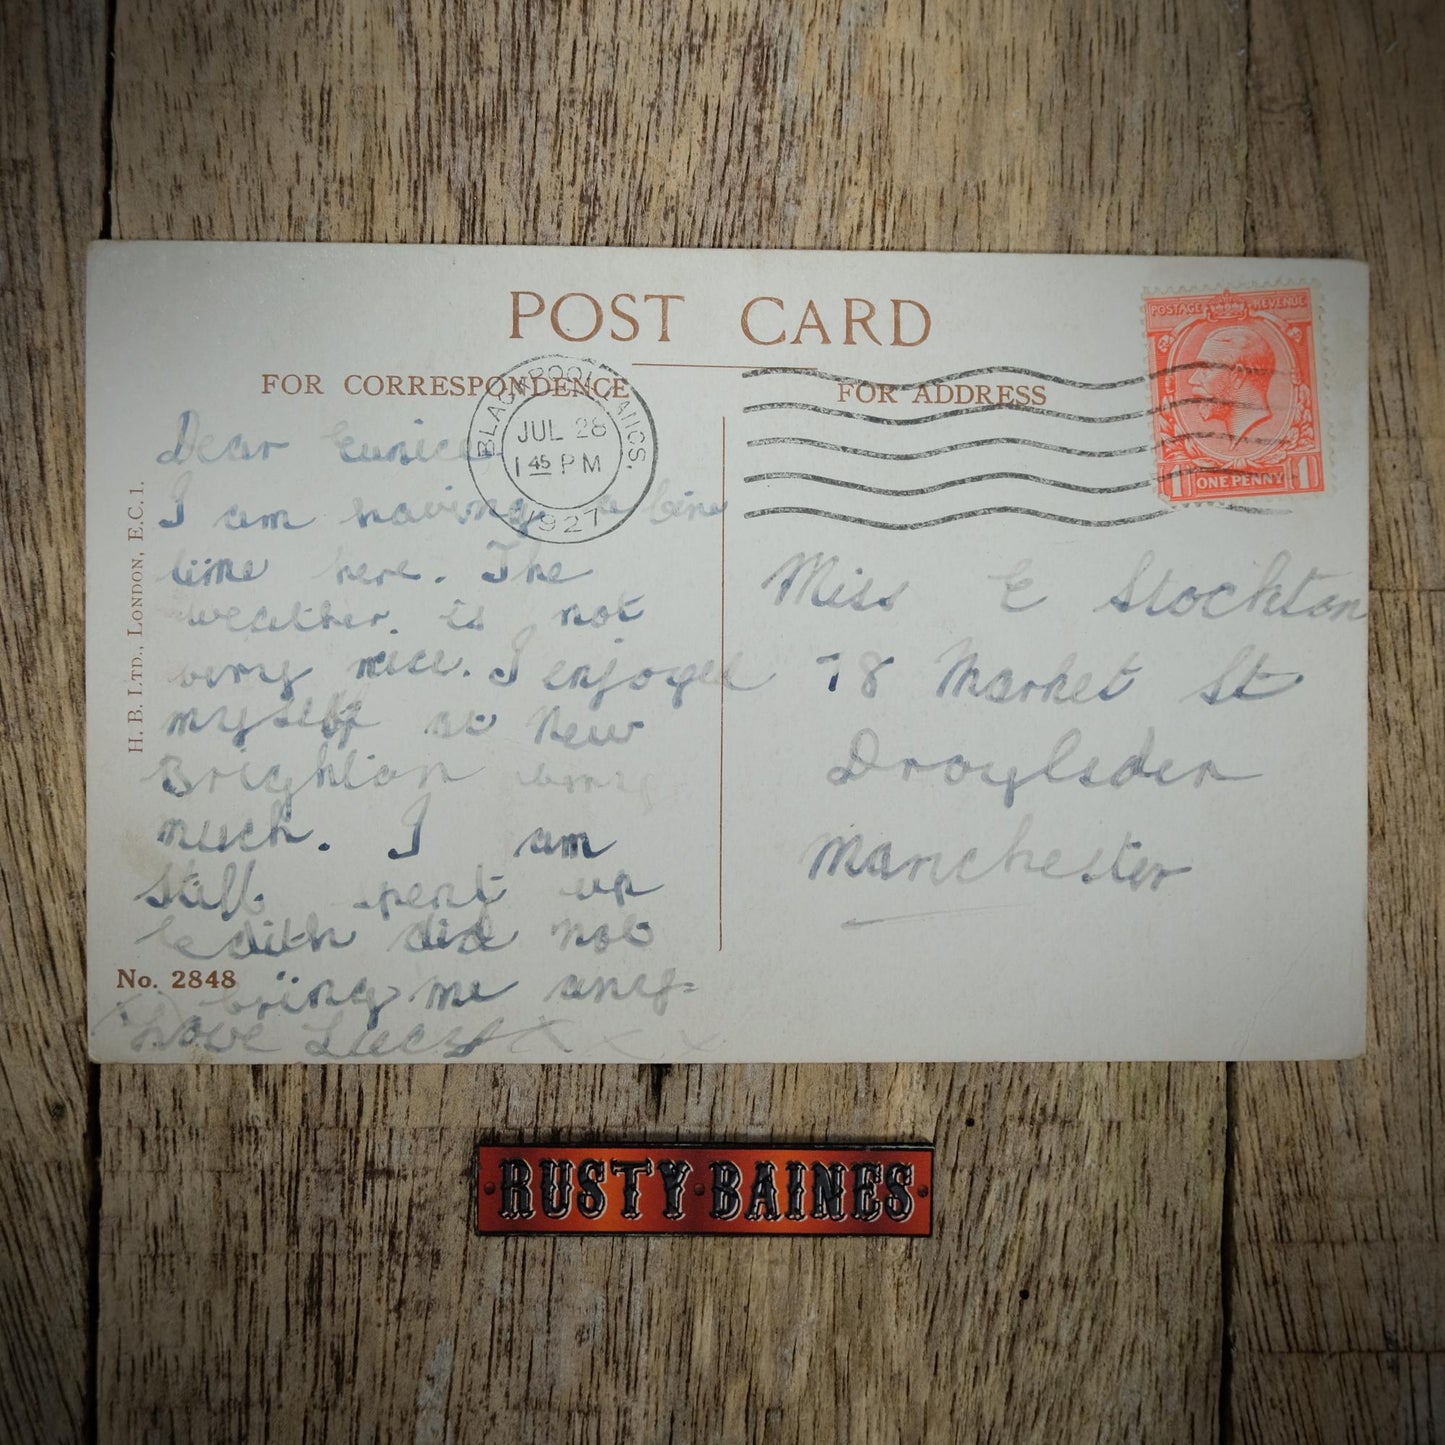 POST CARD
FOR CORRESPONDENCE
FOR ADDRESS
POSTAGE REVENUE
1 ONE PENNY 1
BLACKPOOL LANCS.
JUL 28
1 45 PM
1927
Dear Eunice
I am having a fine
time here. The
weather is not
very nice. I enjoyed
myself at New
Brighton very
much. I am
still pent up
Edith did not
bring me any=
Love Lucy x x x
Miss E Stockton
78 Market St
Droylsden
Manchester
H. B. LTD., LONDON, E.C.1.
No. 2848
RUSTY·BAINES